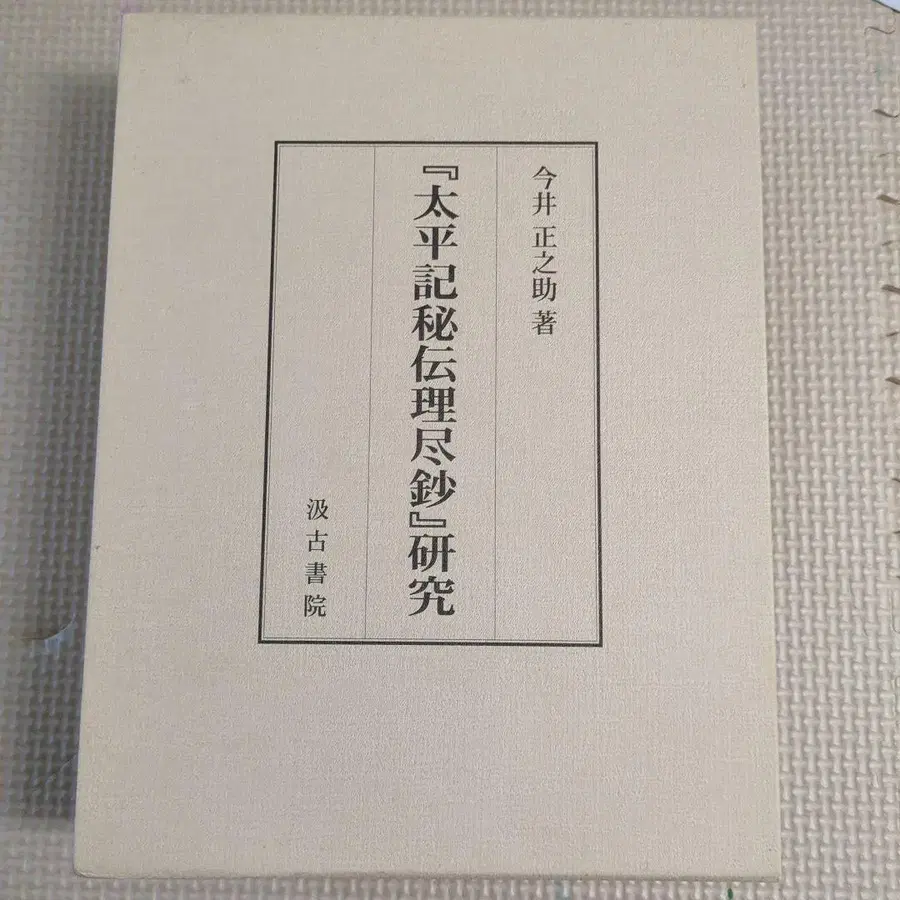 今井 正之助 著
『太平記秘伝理尽鈔』研究
汲古書院